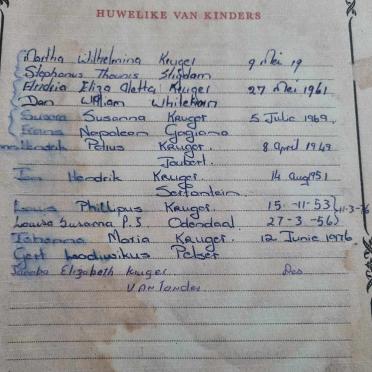 HUWELIKE VAN KINDERS
Martha Wilhelmina Kruger 9 Mei 19
Stephanus Theunis Strydom
Hendria Eliza Aletta Kruger 27 Mei 1961
Dan William Whitehorn
Susara Susanna Kruger 5 Julie 1969.
Frans Napoleon Gogiama
Hendrik Petrus Kruger. 8 April 1949
Joubert.
Hendrik Kruger. 14 aug 1951
Serfontein.
Louis Phillipus Kruger. 15-11-53 11-3-76
Louisa Susanna P.S. Odendaal. 27-3-56
Johanna Maria Kruger. 12 Junie 1976.
Gert Lodiwikus Pelser
Jacoba Elizabeth Kruger. Des
VAN TONDER